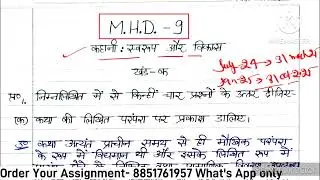 M.H.D.-9
July-24 → 31 march 25
कहानी : स्वरूप और विकास
Jan-25 → 31 oct 2025
खंड-क
प्र०1. निम्नलिखित में से किन्हीं चार प्रश्नों के उत्तर दीजिए
(क) कथा की लिखित परंपरा पर प्रकाश डालिए।
कथा अत्यंत प्राचीन समय से ही मौखिक परंपरा
के रूप में विद्यमान थी और इसके लिखित रूप में
Order Your Assignment- 8851761957 What's App only